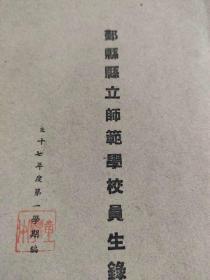 鄞縣縣立師範學校員生錄
三十七年度第一學期編